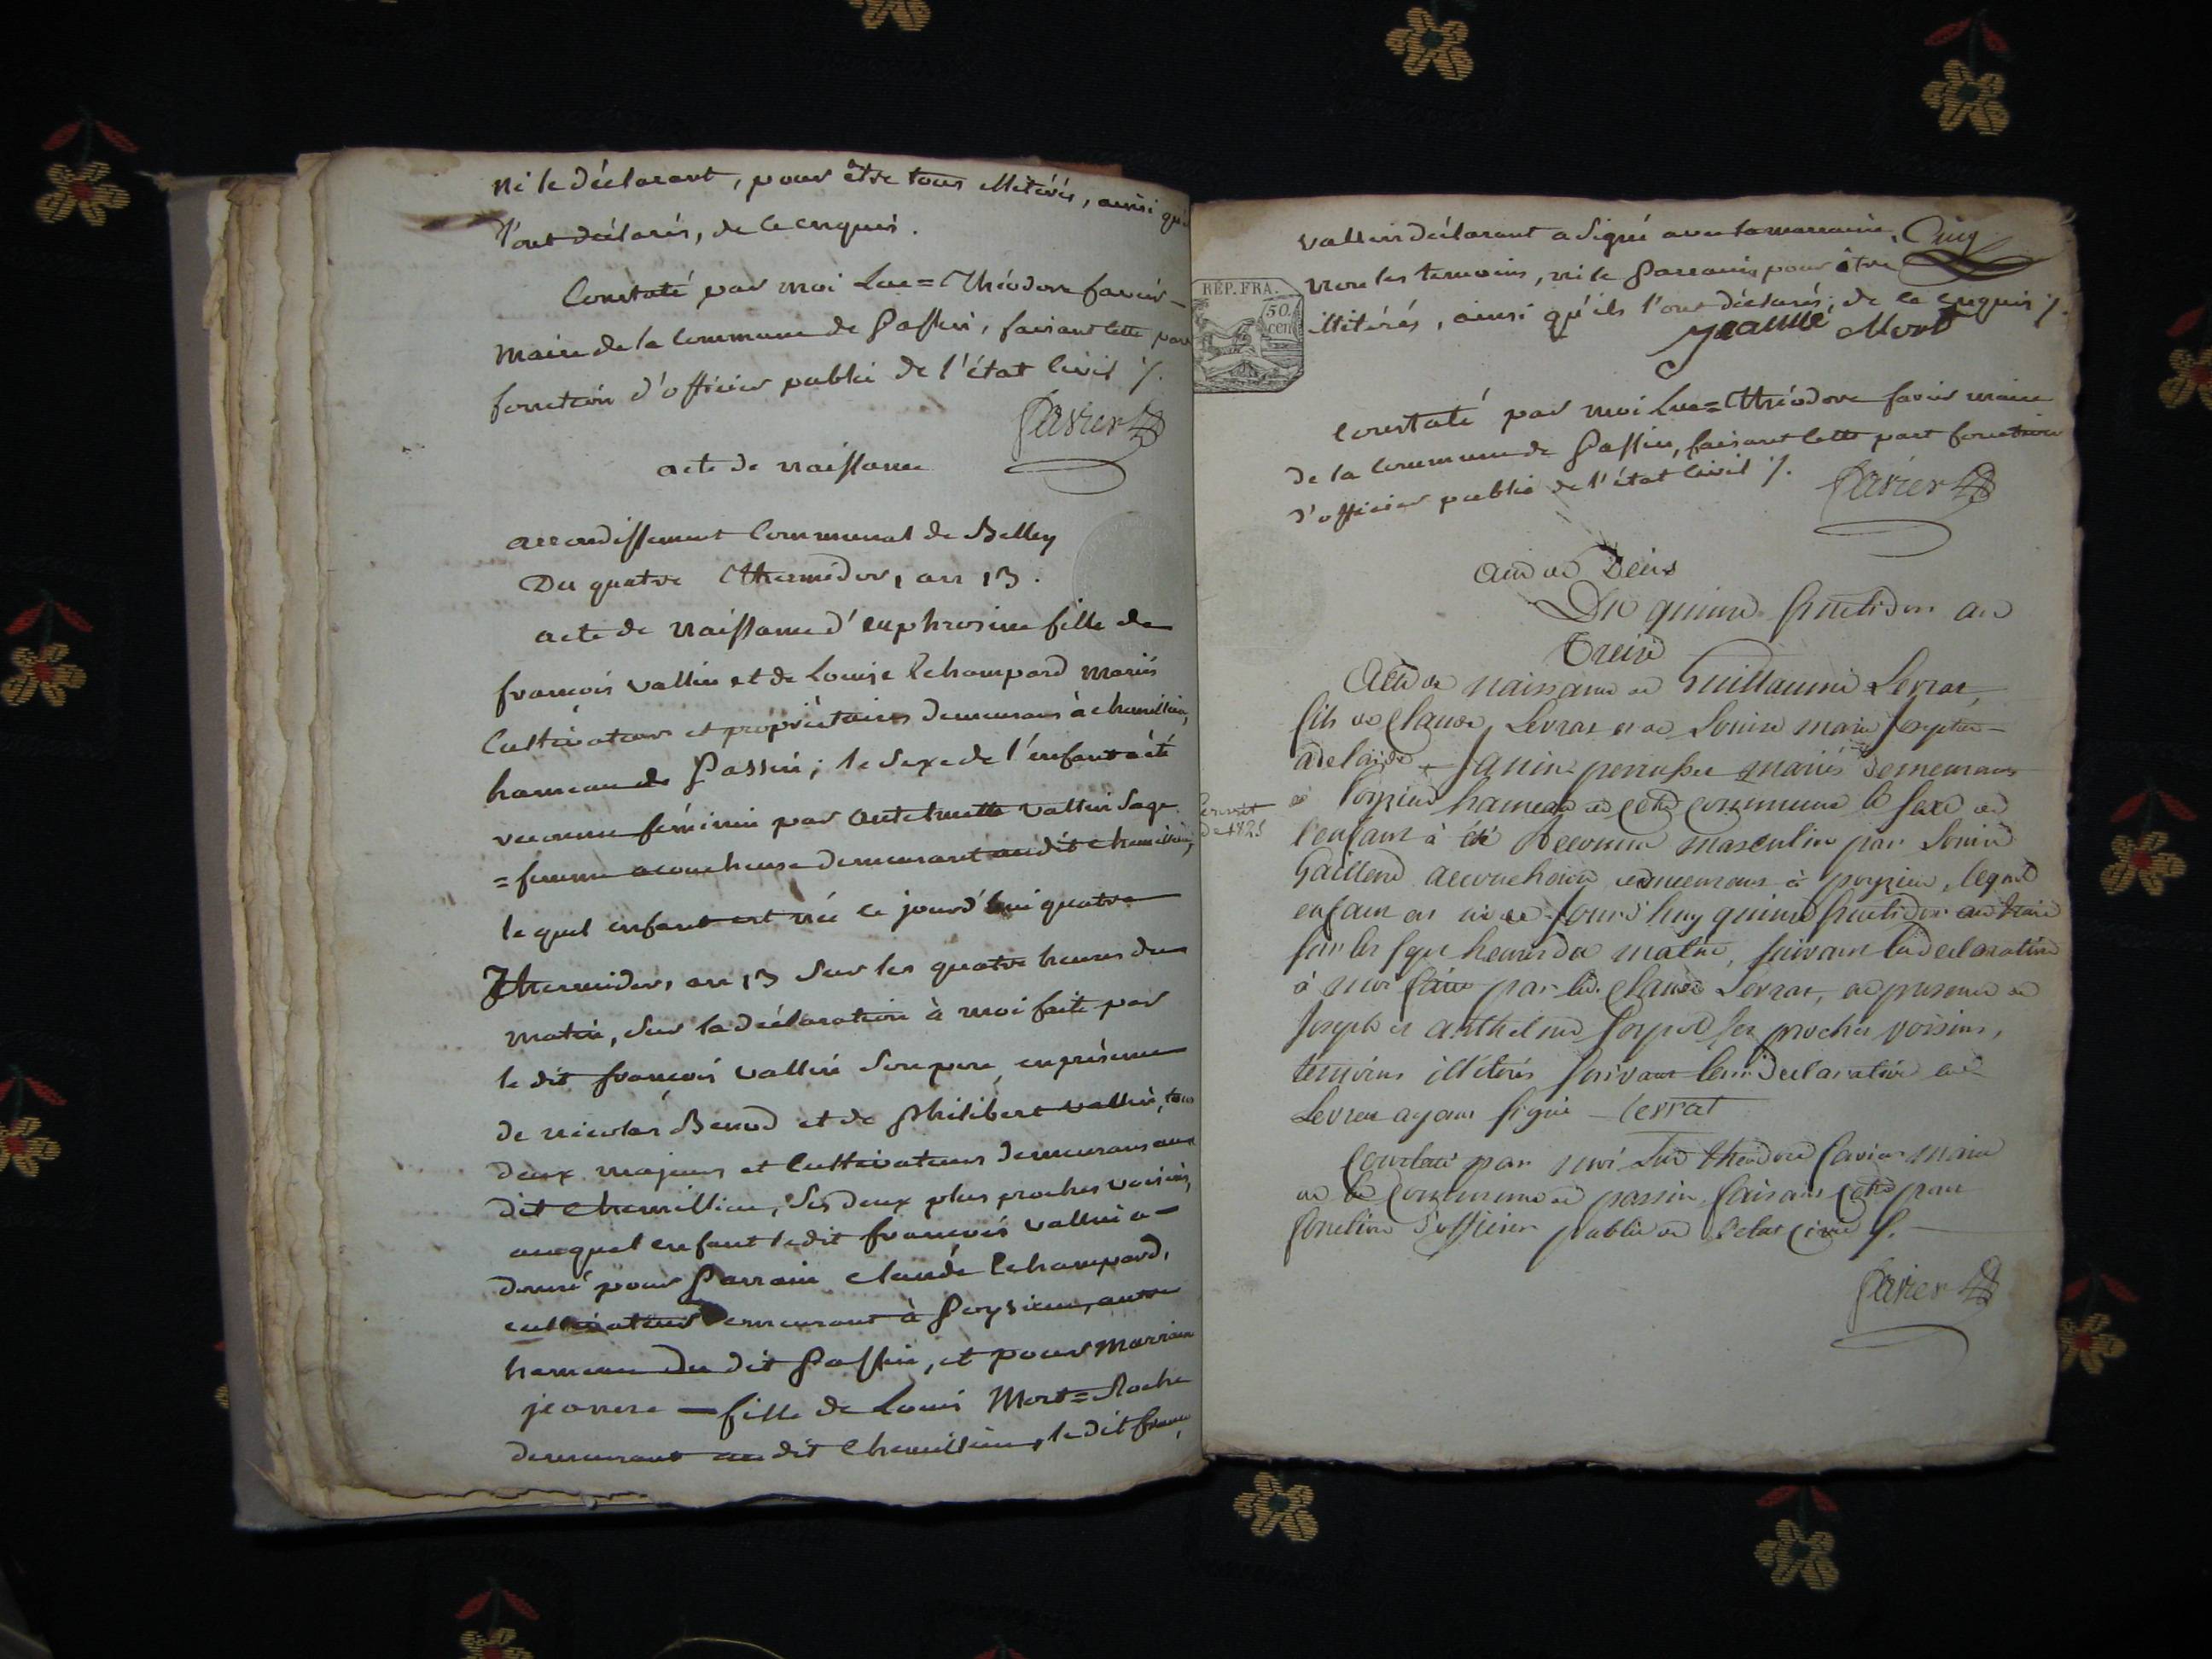 ni le déclarant, pour être tous illitérés, ainsi qu'
l'ont déclarés, de ce enquis.
Constaté par moi Luc=Théodore favier
maire de la commune de Passin, faisant cette part
fonction d'officier public de l'état civil ./.
favier
acte de naissance
arrondissement communal de Belley
Du quatre Thermidor, an 13.
acte de naissance d'euphrosine fille de
françois vallin et de Louise Echampard mariés
cultivateurs et propriétaires demeurans à chemillieu,
hameau de Passin; le sexe de l'enfant a été
reconnu féminin par Anthelmette vallin sage
=femme acoucheuse demeurant audit chemillieu,
lequel enfant est née ce jourd'hui quatre
Thermidor, an 13 sur les quatre heures du
matin, sur la déclaration à moi faite par
le dit françois vallin son pere, en présence
de nicolas Benod et de Philibert vallin, tous
deux majeurs et cultivateurs demeurans au
dit chemillieu, ses deux plus proches voisins,
auquel enfant ledit françois vallin a
donné pour Parrain claude Echampard,
cultivateur demeurant à Poysieu, autre
hameau du dit Passin, et pour Marraine
jeanne fille de Louis Mort=Roche
demeurant au dit Chemillieu, le dit franç
vallin déclarant a signé avec la marraine, Cinq
non les temoins, ni le Parrain pour être
illitérés, ainsi qu'ils l'ont déclarés, de ce enquis ./.
REP. FRA.
50
cen
jeanne Mort
constaté par moi Luc=Théodore favier maire
de la commune de Passin, faisant cette part fonction
d'officier public de l'état civil ./.
favier
Du quinze fructidor an
Treize
Acte de naissance de Guillaume Levrat,
fils de Claude Levrat et de Louise marie
adelaide mariés demeurans
à Poyzieu hameau de cette commune le sexe de
l'enfant à été Reconnu masculin par Louise
Gaillend accoucheuse demeurans à poyzieu, lequel
enfant est né ce jourd'huy quinze fructidor an treize
sur les sept heures du matin, suivant la declaration
à moi faite par led. Claude Levrat, en presence de
Joseph et anthelme ses proches voisins,
temoins illiterés suivant leur declaration led.
Levrat ayant signé levrat
Constaté par moi Luc theodore favier maire
de la commune de passin faisant cette part
fonction d'officier public de l'etat civil ./.
favier